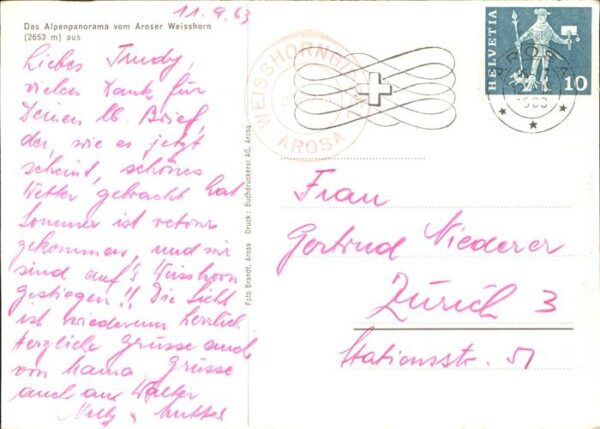 11.9.63
Das Alpenpanorama vom Aroser Weisshorn
(2653 m) aus
Liebes Trudy,
vielen Dank für
Deinen lb. Brief,
der, wie es jetzt
scheint, schönes
Wetter gebracht hat.
Sommer ist retour
gekommen, und wir
sind auf's Weisshorn
gestiegen!! Die Sicht
ist wiederum herrlich
Herzliche Grüsse auch
von Mama. Grüsse
auch an Walter
Nelly
Foto Brandt, Arosa Druck: Buchdruckerei AG, Arosa
WEISSHORNGIPFEL
AROSA
HELVETIA
10
AROSA
Frau
Gertrud Niederer
Zürich 3
Stationsstr. 51